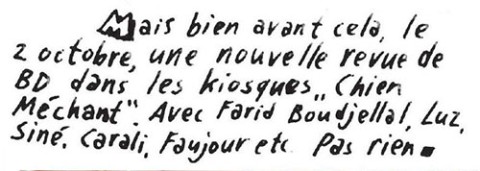 Mais bien avant cela, le
2 octobre, une nouvelle revue de
BD dans les kiosques „Chien
Méchant". Avec Farid Boudjellal, Luz,
Siné, Carali, Faujour etc. Pas rien.